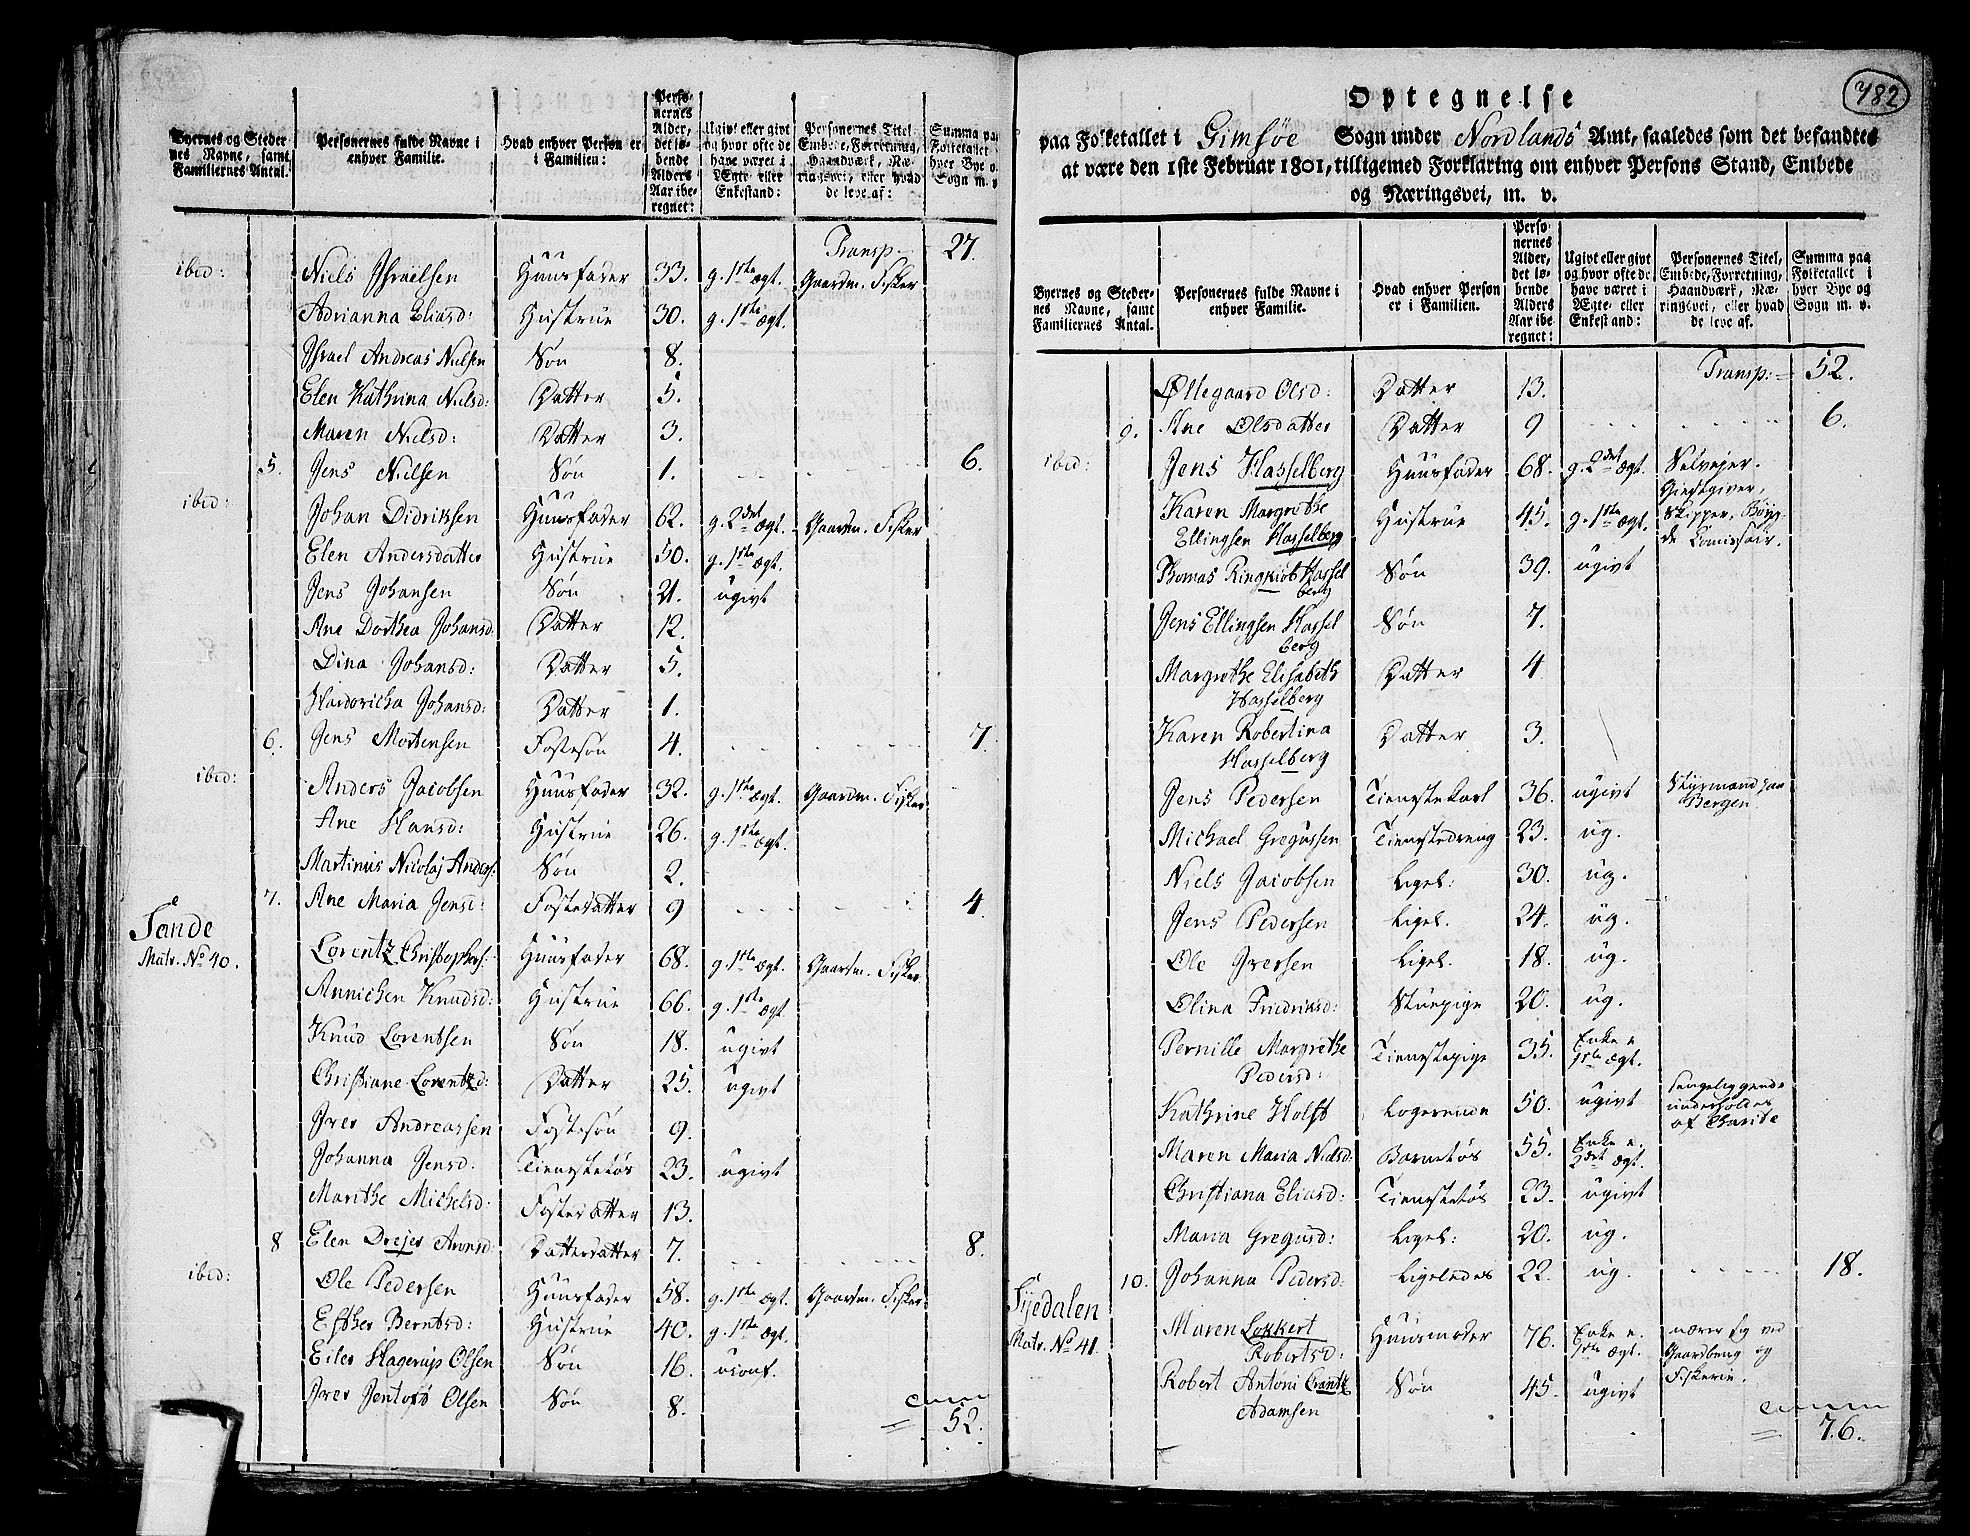 Byernes og Steder
nes Navne, samt
Familiernes Antal.
Personernes fulde Navne i
enhver Familie.
Hvad enhver Person er
i Familien:
Perso-
nernes
Alder,
det lø-
bende
Alders
Aar ibe-
regnet:
Ugivt eller givt
og hvor ofte de
have været i
Ægte- eller
Enkestand:
Personernes Titel
Embede, Forretning,
Haandværk, Næ-
ringsvei, eller hvad
de leve af:
Summa paa
Folketallet
hver Bye o
Sogn m. v
Transp: 27.
ibid: Niels Jsraelsen Huusfader 33. g. 1ste ægt. Gaardm. Fisker
Adrianna Eliasd: Hustrue 30. g. 1ste ægt.
Jsrael Andreas Nielsen Søn 8.
Elen Kathrina Nielsd: Datter 5.
Maren Nielsd: Datter 3.
5. Jens Nielsen Søn 1. 6.
ibid: Johan Didriksen Huusfader 62. g. 2det ægt. Gaardm. Fisker
Elen Andersdatter Hustrue 50. g. 1ste ægt.
Jens Johansen Søn 21. ugivt
Ane Dorthea Johansd: Datter 12.
Dina Johansd: Datter 5.
Johansd: Datter 1.
6. Jens Mortensen Fostesøn 4. 7.
ibid: Anders Jacobsen Huusfader 32. g. 1ste ægt. Gaardm. Fisker
Ane Hansd: Hustrue 26. g. 1ste ægt.
Martinus Nicolaj Anders: Søn 2.
7. Ane Maria Jensd: Fostedatter 9 4.
Sande
Matr. No 40. Lorentz Christophers: Huusfader 68. g. 1ste ægt. Gaardm. Fisker
Annichen Knudsd: Hustrue 66. g. 1ste ægt.
Knud Lorentsen Søn 18. ugivt
Christiane Lorentzd: Datter 25. ugivt
Jver Andreassen Fostesøn 9.
Johanna Jensd: Tienestetøs 23. ugivt
Marithe Michelsd: Fostedatter 13.
8 Elen Drejer Arnsd: Datterdatter 7. 8.
ibid: Ole Pedersen Huusfader 58. g. 1ste ægt. Gaardm. Fisker
Esther Berntsd: Hustrue 40. g. 1ste ægt.
Eiler Hagerup Olsen Søn 16.
Jver Jentoft Olsen Søn 8.
52.
782
Optegnelse
paa Folketallet i Gimsøe Sogn under Nordlands Amt, saaledes som det befandtes
at være den 1ste Februar 1801, tilligemed Forklaring om enhver Persons Stand, Embede
og Næringsvei, m. v.
Byernes og Steder-
nes Navne, samt
Familiernes Antal.
Personernes fulde Navne i
enhver Familie.
Hvad enhver Person
er i Familien.
Perso-
nernes
Alder,
det lø-
bende
Alders
Aar ibe-
regnet:
Ugivt eller givt
og hvor ofte de
have været i
Ægte- eller
Enkestand:
Personernes Titel,
Embede, Forretning,
Haandværk, Næ-
ringsvei, eller hvad
de leve af.
Summa paa
Folketallet i
hver Bye og
Sogn m. v.
Transp: 52.
Øllegaard Olsd: Datter 13.
9. Ane Olsdatter Datter 9 6.
ibid: Jens Hasselberg Huusfader 68. g. 2det ægt. Selvejer.
Giestgiver,
Karen Margrethe Hustrue 45. g. 1ste ægt. Skipper, Bøyg-
Ellingsen Hasselberg de Comissair.
Thomas Ringkiøb Hassel Søn 39. ugivt
berg
Jens Ellingsen Hassel Søn 7.
berg
Margrethe Elisabeth Datter 4
Hasselberg
Karen Robertina Datter 3.
Hasselberg
Jens Pedersen Tienestekarl 36. ugivt Styrmand paa
Bergen
Michael Gregussen Tienestedreng 23. ug.
Niels Jacobsen Ligel: 30. ug.
Jens Pedersen Ligel. 24. ug.
Ole Jversen Ligel. 18. ug.
Olina Fridriksd: Stuepige 20. ug.
Pernille Margrethe Tienestepige 35. Enke e
Pedersd: 1ste ægt.
Kathrine Holst Logerende 50. ugivt sengeliggende
underholdes
af Charité
Maren Maria Nielsd: Barnetøs 55. Enke e.
2det ægt.
Christiana Eliasd: Tienestetøs 23. ugivt
Maria Gregusd: Ligel: 20. ug.
10. Johanna Pedersd: Ligeledes 22. ug. 18.
Syedalen
Matr. No 41 Maren Lokkert Huusmoder 76. Enke e. nærer sig ved
Robertsd: 1ste ægt. Gaardbrug og
Robert Antoni Crantz Søn 45. ugivt Fiskerie.
Adamsen
76.